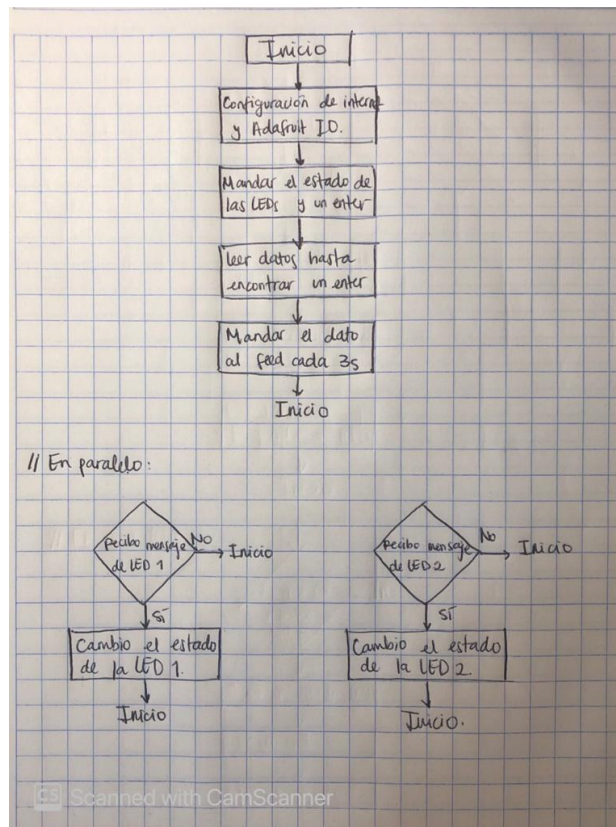 Inicio
Configuración de internet
y Adafruit IO.
Mandar el estado de
las LEDs y un enter
leer datos hasta
encontrar un enter
Mandar el dato
al feed cada 3s
Inicio
// En paralelo:
Recibo mensaje
de LED 1
No
Inicio
Sí
Cambio el estado
de la LED 1.
Inicio
Recibo mensaje
de LED 2
No
Inicio
Sí
Cambio el estado
de la LED 2.
Inicio.
CS Scanned with CamScanner